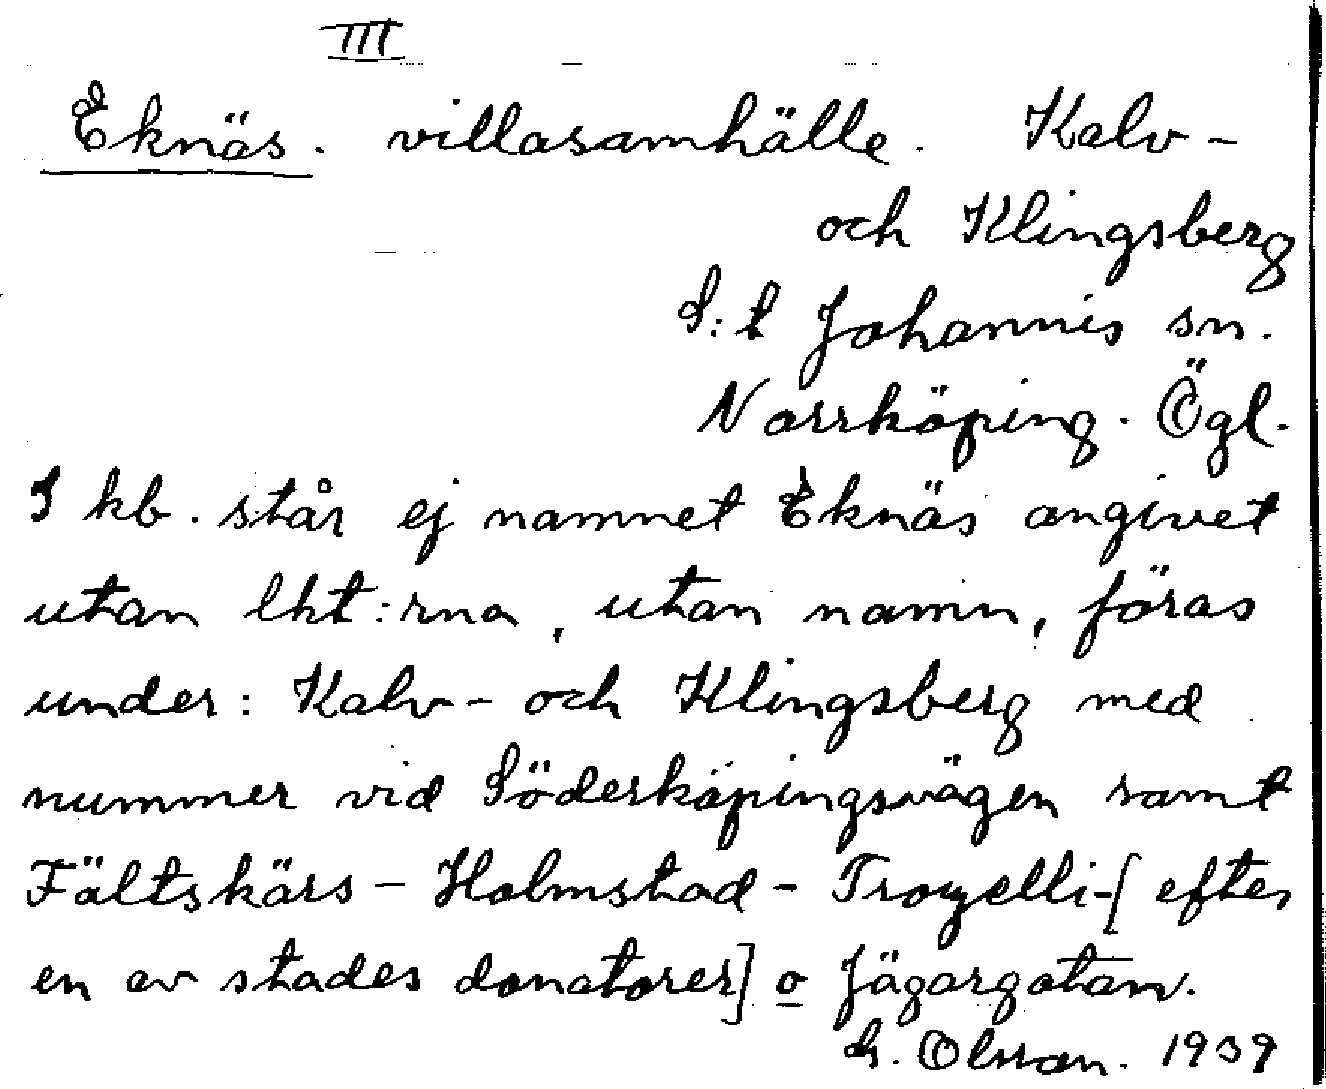 III
Eknäs. villasamhälle. Kalv-
och Klingsberg
S:t Johannis sn.
Norrköping. Ögl.
I kb. står ej namnet Eknäs angivet
utan lht:rna, utan namn, föras
under: Kalv- och Klingsberg med
nummer vid Söderköpingsvägen samt
Fältskärs - Holmstad - Trozelli-[efter
en av stades donatorer] o Jägargatan.
G. Olsson. 1939